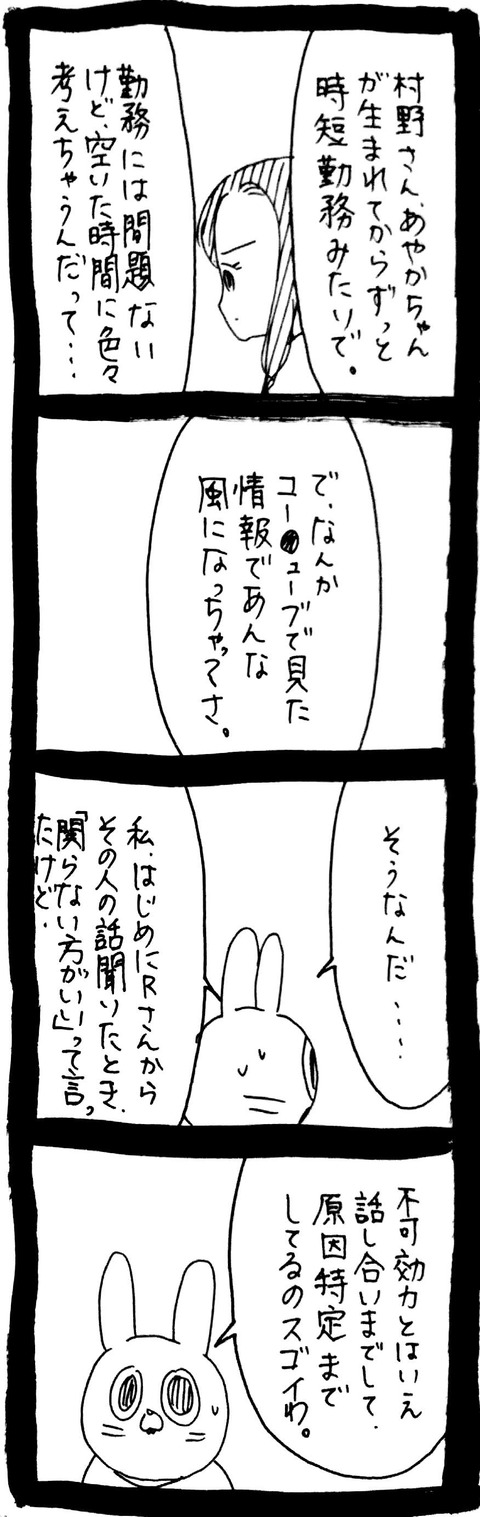 村野さん、あやかちゃん
が生まれてからずっと
時短勤務みたいで。
勤務には問題ない
けど、空いた時間に色々
考えちゃうんだって…
で、なんか
ユー●ューブで見た
情報であんな
風になっちゃってさ。
そうなんだ....
私、はじめにRさんから
その人の話聞いたとき、
「関らない方がいい」って言っ
たけど、
不可効力とはいえ
話し合いまでして、
原因特定まで
してるのスゴイわ。